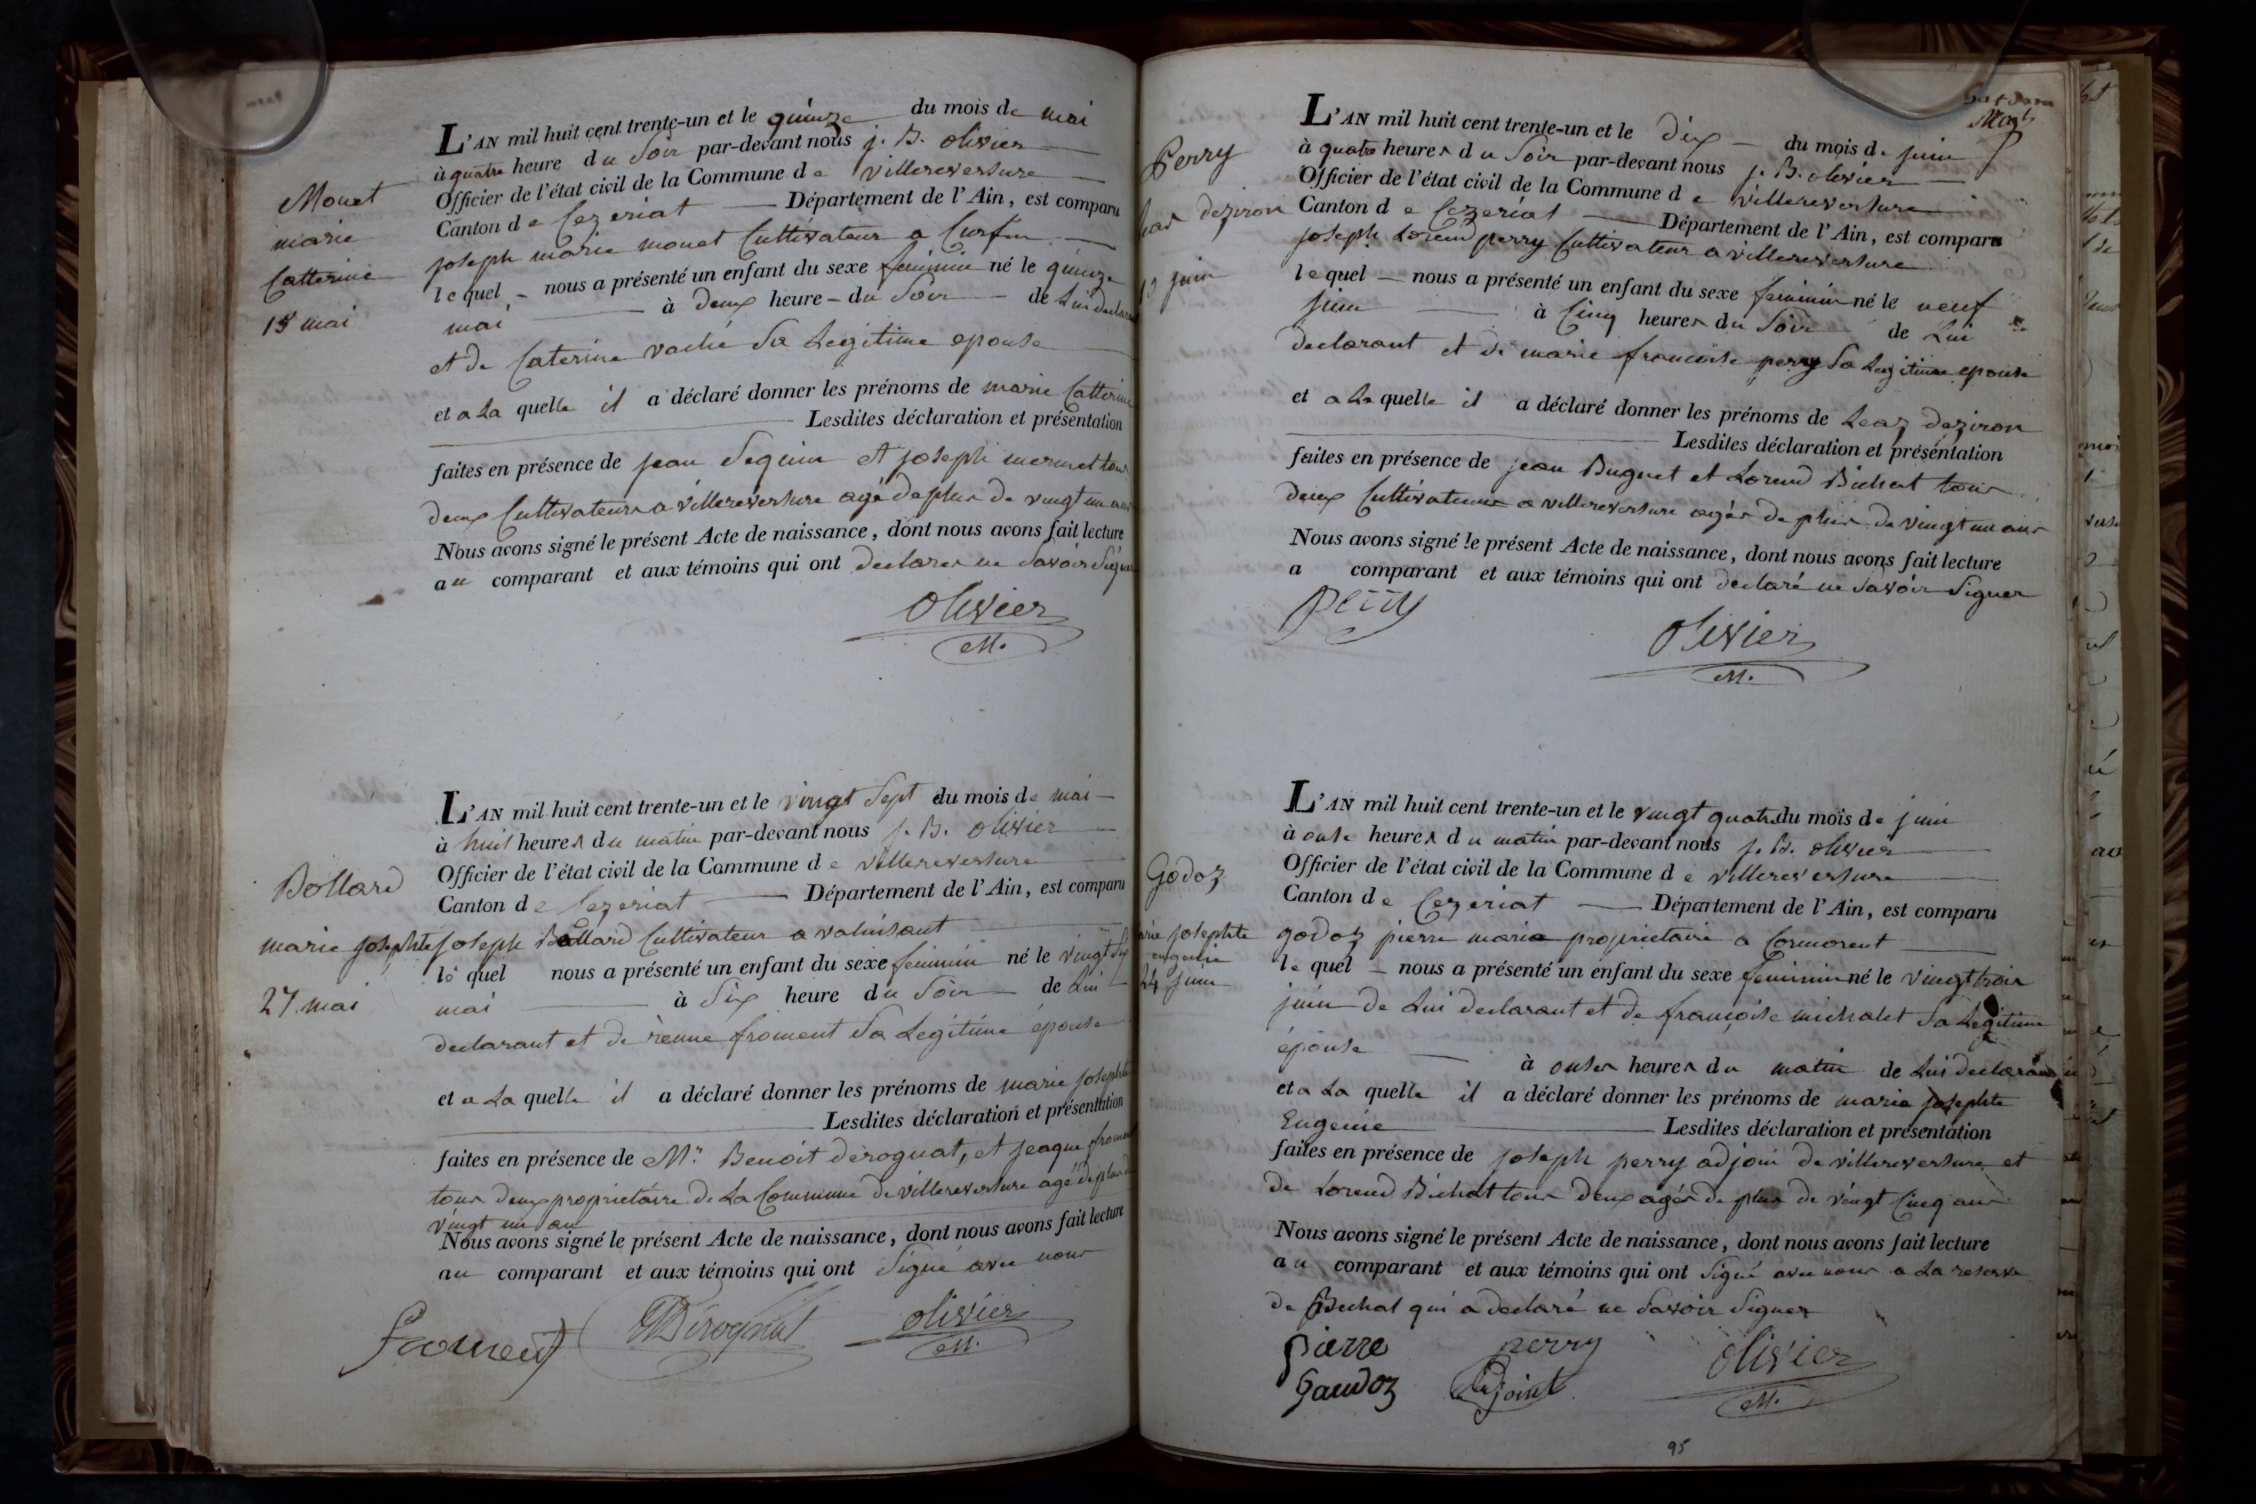 Monet
marie
Catterine
15 mai
L'AN mil huit cent trente-un et le quinze du mois de mai
à quatre heure du Soir par-devant nous j. B. olivier
Officier de l'état civil de la Commune de villereversure
Canton de Cezeriat Département de l'Ain, est comparu
joseph marie monet Cultivateur a
lequel nous a présenté un enfant du sexe feminin né le quinze
mai à deux heure du Soir de Lui declarant
et de Caterine vaché Sa Legitime epouse
et a La quelle il a déclaré donner les prénoms de marie Catterine
Lesdites déclaration et présentation
faites en présence de jean Seguin et joseph mermet tous
deux Cultivateurs a villereversure agé de plus de vingt un ans
Nous avons signé le présent Acte de naissance, dont nous avons fait lecture
au comparant et aux témoins qui ont declares ne Savoir Signer
Olivier
M.
Bollard
marie josephte
27 mai
L'AN mil huit cent trente-un et le vingt Sept du mois de mai
à huit heures du matin par-devant nous j. B. olivier
Officier de l'état civil de la Commune de villereversure
Canton de Cezeriat Département de l'Ain, est comparu
joseph Bollard Cultivateur a valuisant
le quel nous a présenté un enfant du sexe feminin né le vingt
mai à Six heure du Soir de Lui
declarant et de renne froment Sa Legitime épouse
et a La quelle il a déclaré donner les prénoms de marie josephte
Lesdites déclaration et présentation
faites en présence de Mr Benoit derognat, et jeaque froment
tous deux proprietaire de La Commune de villereversure agé de plus de
vingt un an
Nous avons signé le présent Acte de naissance, dont nous avons fait lecture
au comparant et aux témoins qui ont Signé avec nous
froment Dérognat olivier
M.
Perry
Leas deziron
juin
L'AN mil huit cent trente-un et le dix du mois de juin
à quatre heures du Soir par-devant nous j. B. olivier
Officier de l'état civil de la Commune de villereversure
Canton de Cezeriat Département de l'Ain, est comparu
joseph Lorend perry Cultivateur a villereversure
lequel nous a présenté un enfant du sexe feminin né le neuf
juin à Cinq heures du Soir de Lui
declarant et de marie francoise perry Sa Legitime epouse
et a La quelle il a déclaré donner les prénoms de Leaz deziron
Lesdites déclaration et présentation
faites en présence de jean Buguet et Lorend Bichat tous
deux Cultivateurs a villereversure agés de plus de vingt un ans
Nous avons signé le présent Acte de naissance, dont nous avons fait lecture
a comparant et aux témoins qui ont declaré ne Savoir Signer
perry
Olivier
M.
Godoz
marie josephte
eugenie
24 juin
L'AN mil huit cent trente-un et le vingt quatre du mois de juin
à onse heures du matin par-devant nous j. B. olivier
Officier de l'état civil de la Commune de villereversure
Canton de Cezeriat Département de l'Ain, est comparu
godoz pierre marie proprietaire a Cormorent
le quel nous a présenté un enfant du sexe feminin né le vingt trois
juin de Lui declarant et de françoise michalet Sa Legitime
épouse à onses heures du matin de Lui declarant
et a La quelle il a déclaré donner les prénoms de marie josephte
Eugenie Lesdites déclaration et présentation
faites en présence de joseph perry adjoin de villereversure et
de Lorend Bichat tous deux agés de plus de vingt Cinq ans
Nous avons signé le présent Acte de naissance, dont nous avons fait lecture
au comparant et aux témoins qui ont Signé avec nous a La reserve
de Bichat qui a declaré ne Savoir Signer
pierre perry olivier
Gaudoz adjoint M.
95